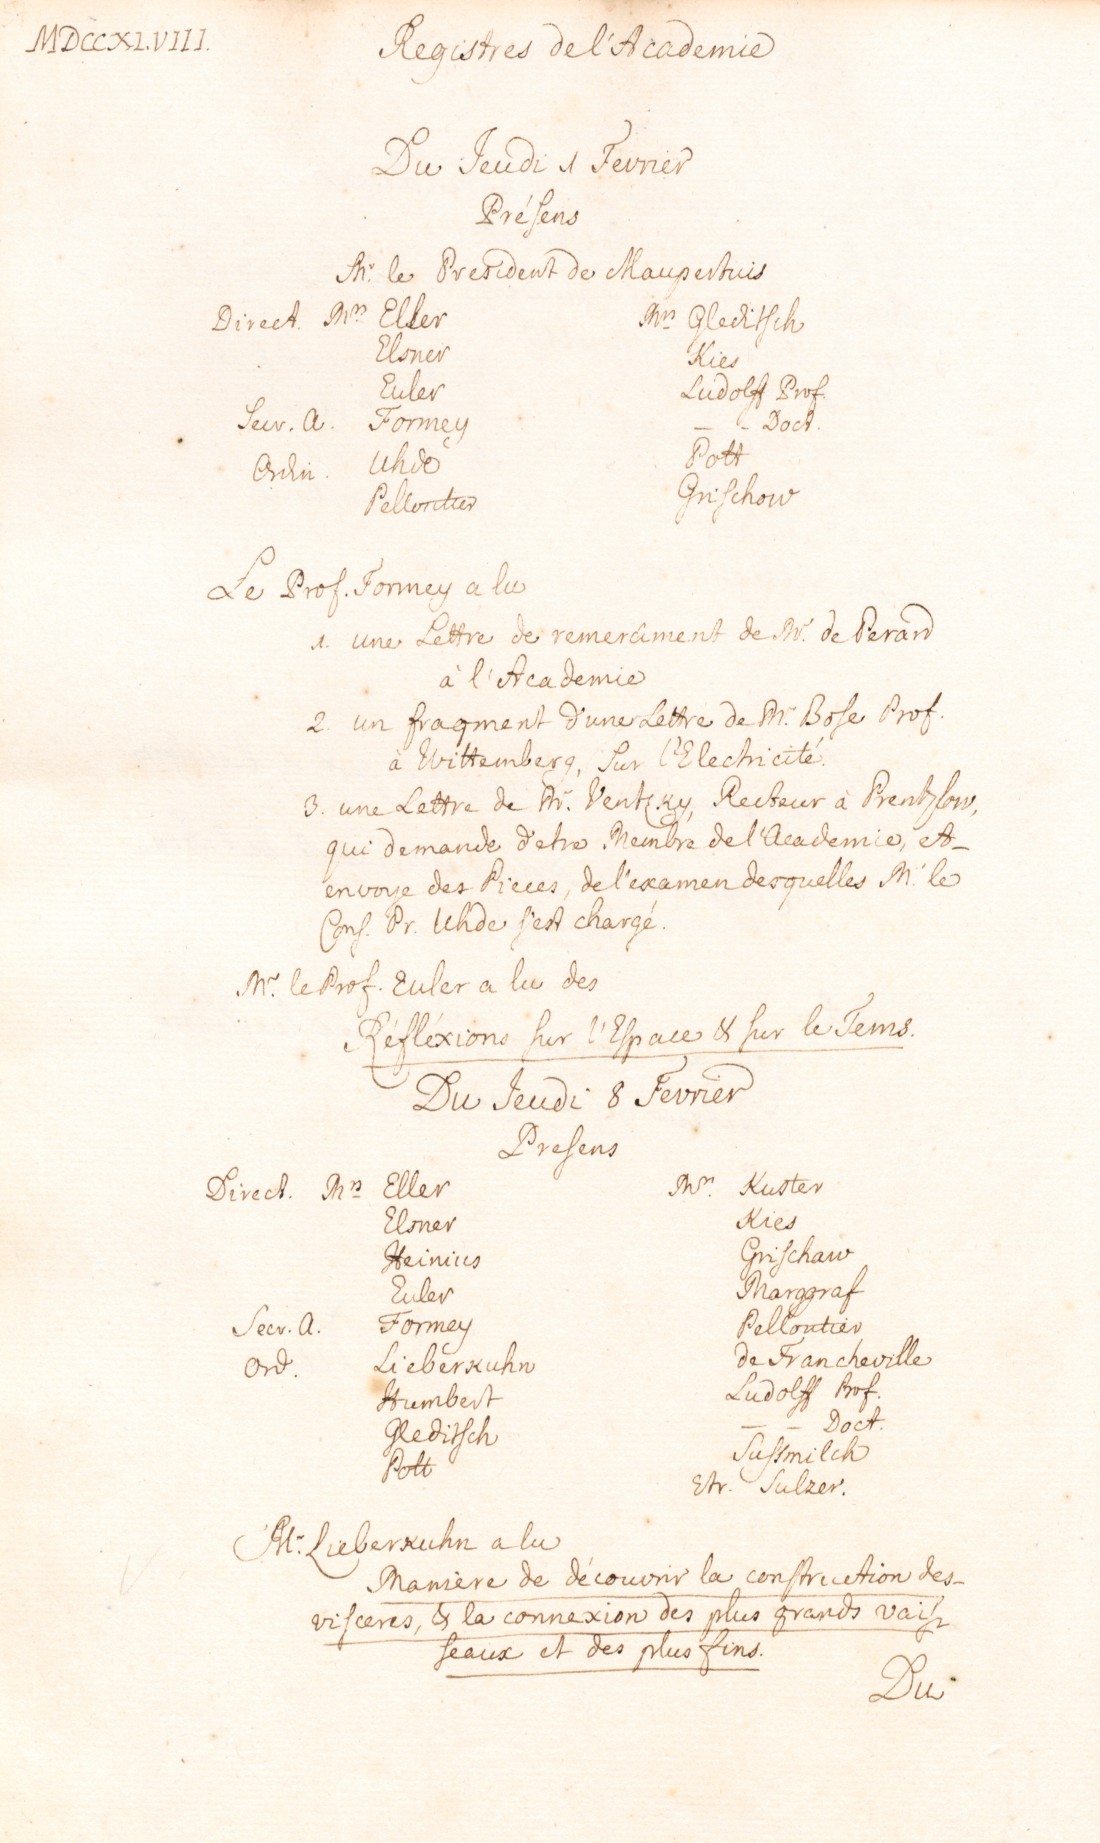 MDCCXLVIII.
Registres de l'Academie
Du Jeudi 1 Fevrier
Présens
Mr. le President de Maupertuis
Direct. Mrs Eller
Elsner
Euler
Secr. A. Formey
Ordin. Uhde
Pelloutier
Mrs Gleditsch
Kies
Ludolff Prof.
— - Doct.
Pott
Grischow
Le Prof. Formey a lu
1. une Lettre de remerciment de Mr. de Perard
à l'Academie
2. un fragment d'une Lettre de Mr. Bose Prof.
à Wittemberg, sur l'Electricité.
3. une Lettre de Mr. Ventzky, Recteur à Prentzlow,
qui demande d'etre Membre de l'Academie, et
envoye des Pieces, de l'examen desquelles Mr. le
Cons. Pr. Uhde s'est chargé.
Mr. le Prof. Euler a lu des
Réfléxions sur l'Espace & sur le Tems.
Du Jeudi 8 Fevrier
Presens
Direct. Mrs Eller
Elsner
Heinius
Euler
Secr. A. Formey
Ord. Lieberkuhn
Humbert
Gleditsch
Pott
Mrs. Kuster
Kies
Grischaw
Marggraf
Pelloutier
de Francheville
Ludolff Prof.
— — Doct.
Sussmilch
Etr. Sulzer.
Mr. Lieberkuhn a lu
Manière de découvrir la construction des
visceres, & la connexion des plus grands vais-
seaux et des plus fins.
Du